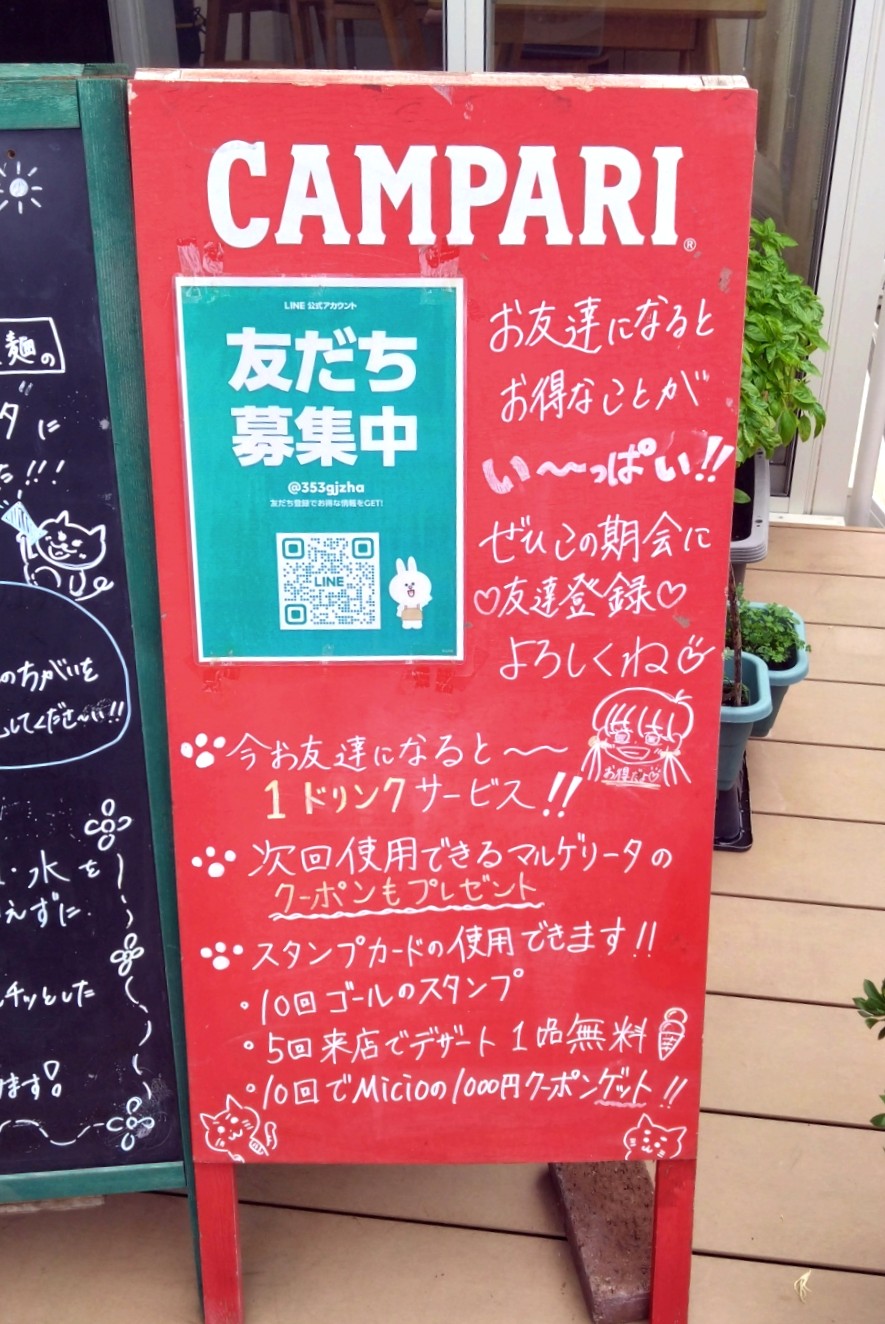 CAMPARI®
LINE 公式アカウント
友だち
募集中
@353gjzha
友だち登録でお得な情報をGET!
LINE
お友達になると
お得なことが
い〜っぱい!!
ぜひこの期会に
♡友達登録♡
よろしくね
お得だよ♡
今お友達になると〜〜
1ドリンクサービス!!
次回使用できるマルゲリータの
クーポンもプレゼント
スタンプカードの使用できます!!
・10回ゴールのスタンプ
・5回来店でデザート1品無料
・10回でMicioの1000円クーポンゲット!!
麺の
タに
た!!!
のちがいを
してくださ〜い!!
・水を
えずに
チッとした
ます!